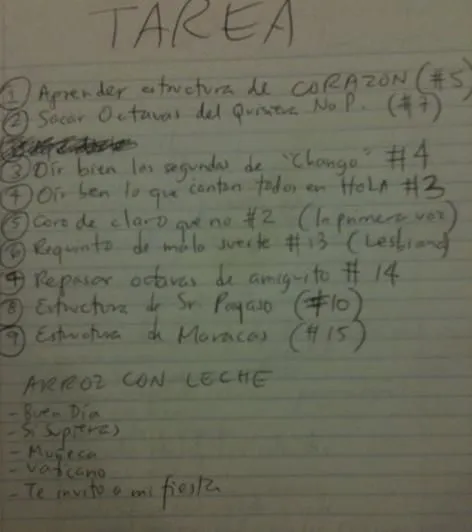 TAREA
① Aprender estructura de CORAZON (#5)
② Sacar Octavas del Quisiera No P. (#7)
③ Oir bien las segundas de "Chango" #4
④ Oir ben lo que cantan todos en HOLA #3
⑤ Coro de claro que no #2 (la primera voz)
⑥ Requinto de mala suerte #13 (Lesbiana)
⑦ Repasar octavas de amiguito #14
⑧ Estructura de Sr Payaso (#10)
⑨ Estructura de Maracas (#15)
ARROZ CON LECHE
- Buen Día
- Si Supieras
- Muñeca
- Vaticano
- Te invito a mi fiesta